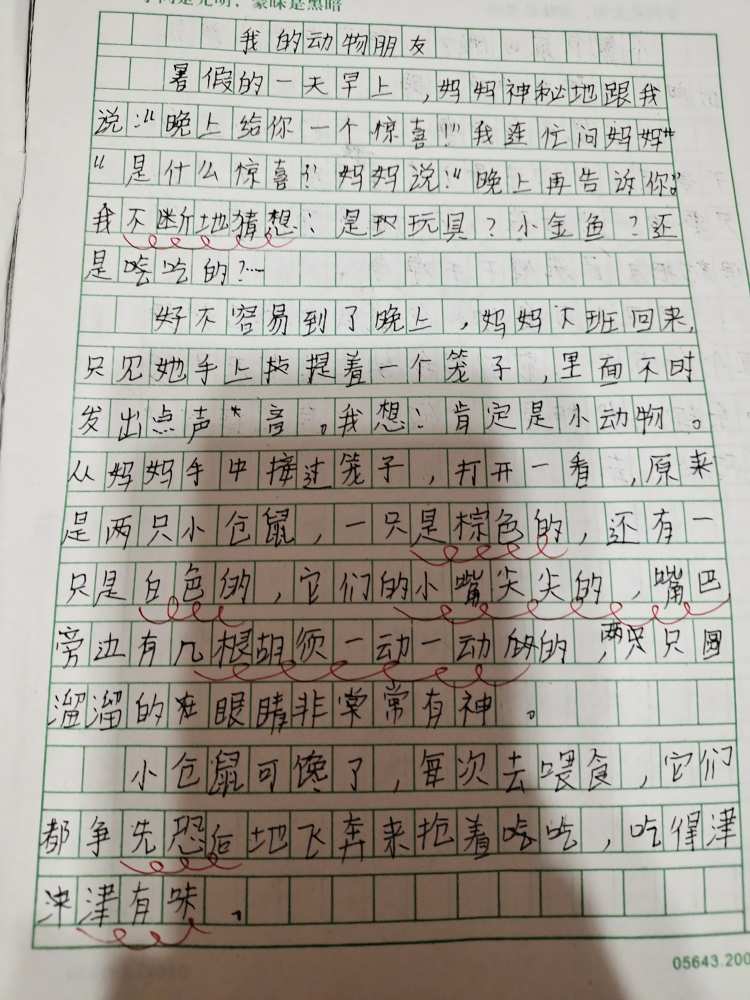 我的动物朋友
暑假的一天早上，妈妈神秘地跟我
说：“晚上给你一个惊喜！”我连忙问妈妈
“是什么惊喜？妈妈说：“晚上再告诉你。”
我不断地猜想：是玩具？小金鱼？还
是吃吃的？…
好不容易到了晚上，妈妈下班回来，
只见她手上提着一个笼子，里面不时
发出点声音。我想：肯定是小动物。
从妈妈手中接过笼子，打开一看，原来
是两只小仓鼠，一只是棕色的，还有一
只是白色的，它们的小嘴尖尖的，嘴巴
旁边有几根胡须一动一动的，两只只圆
溜溜的眼睛非常常有神。
小仓鼠可馋了，每次去喂食，它们
都争先恐后地飞奔来抢着吃吃，吃得津
津有味。
05643.200